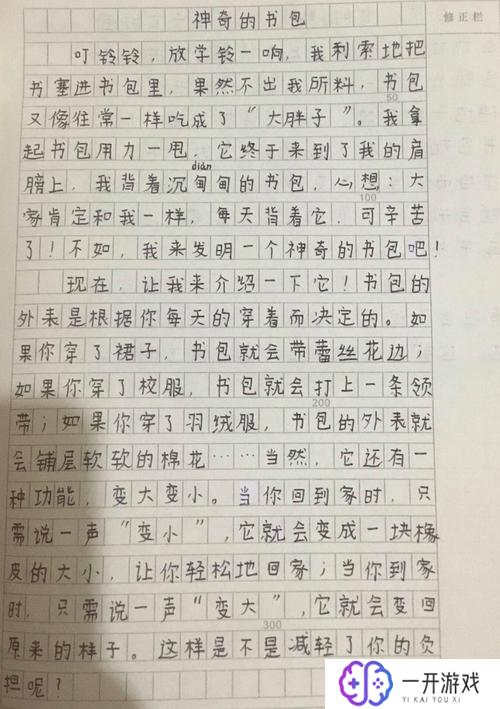 修正栏
神奇的书包
叮铃铃，放学铃一响，我利索地把
书塞进书包里，果然不出我所料，书包
50
又像往常一样吃成了“大胖子”。我拿
起书包用力一甩，它终于来到了我的肩
diàn
膀上，我背着沉甸甸的书包，心想：大
100
家肯定和我一样，每天背着它，可辛苦
了！不如，我来发明一个神奇的书包吧！
现在，让我来介绍一下它！书包的
外表是根据你每天的穿着而决定的。如
果你穿了裙子，书包就会带蕾丝花边；
如果你穿了校服，书包就会打上一条领
200
带；如果你穿了羽绒服，书包的外表就
会铺层软软的棉花……当然，它还有一
种功能，变大变小。当你回到家时，只
需说一声“变小”，它就会变成一块橡
皮的大小，让你轻松地回家；当你到家
时，只需说一声“变大”，它就会变回
300
原来的样子。这样是不是减轻了你的负
担呢？
一开游戏
YI KAI YOU XI